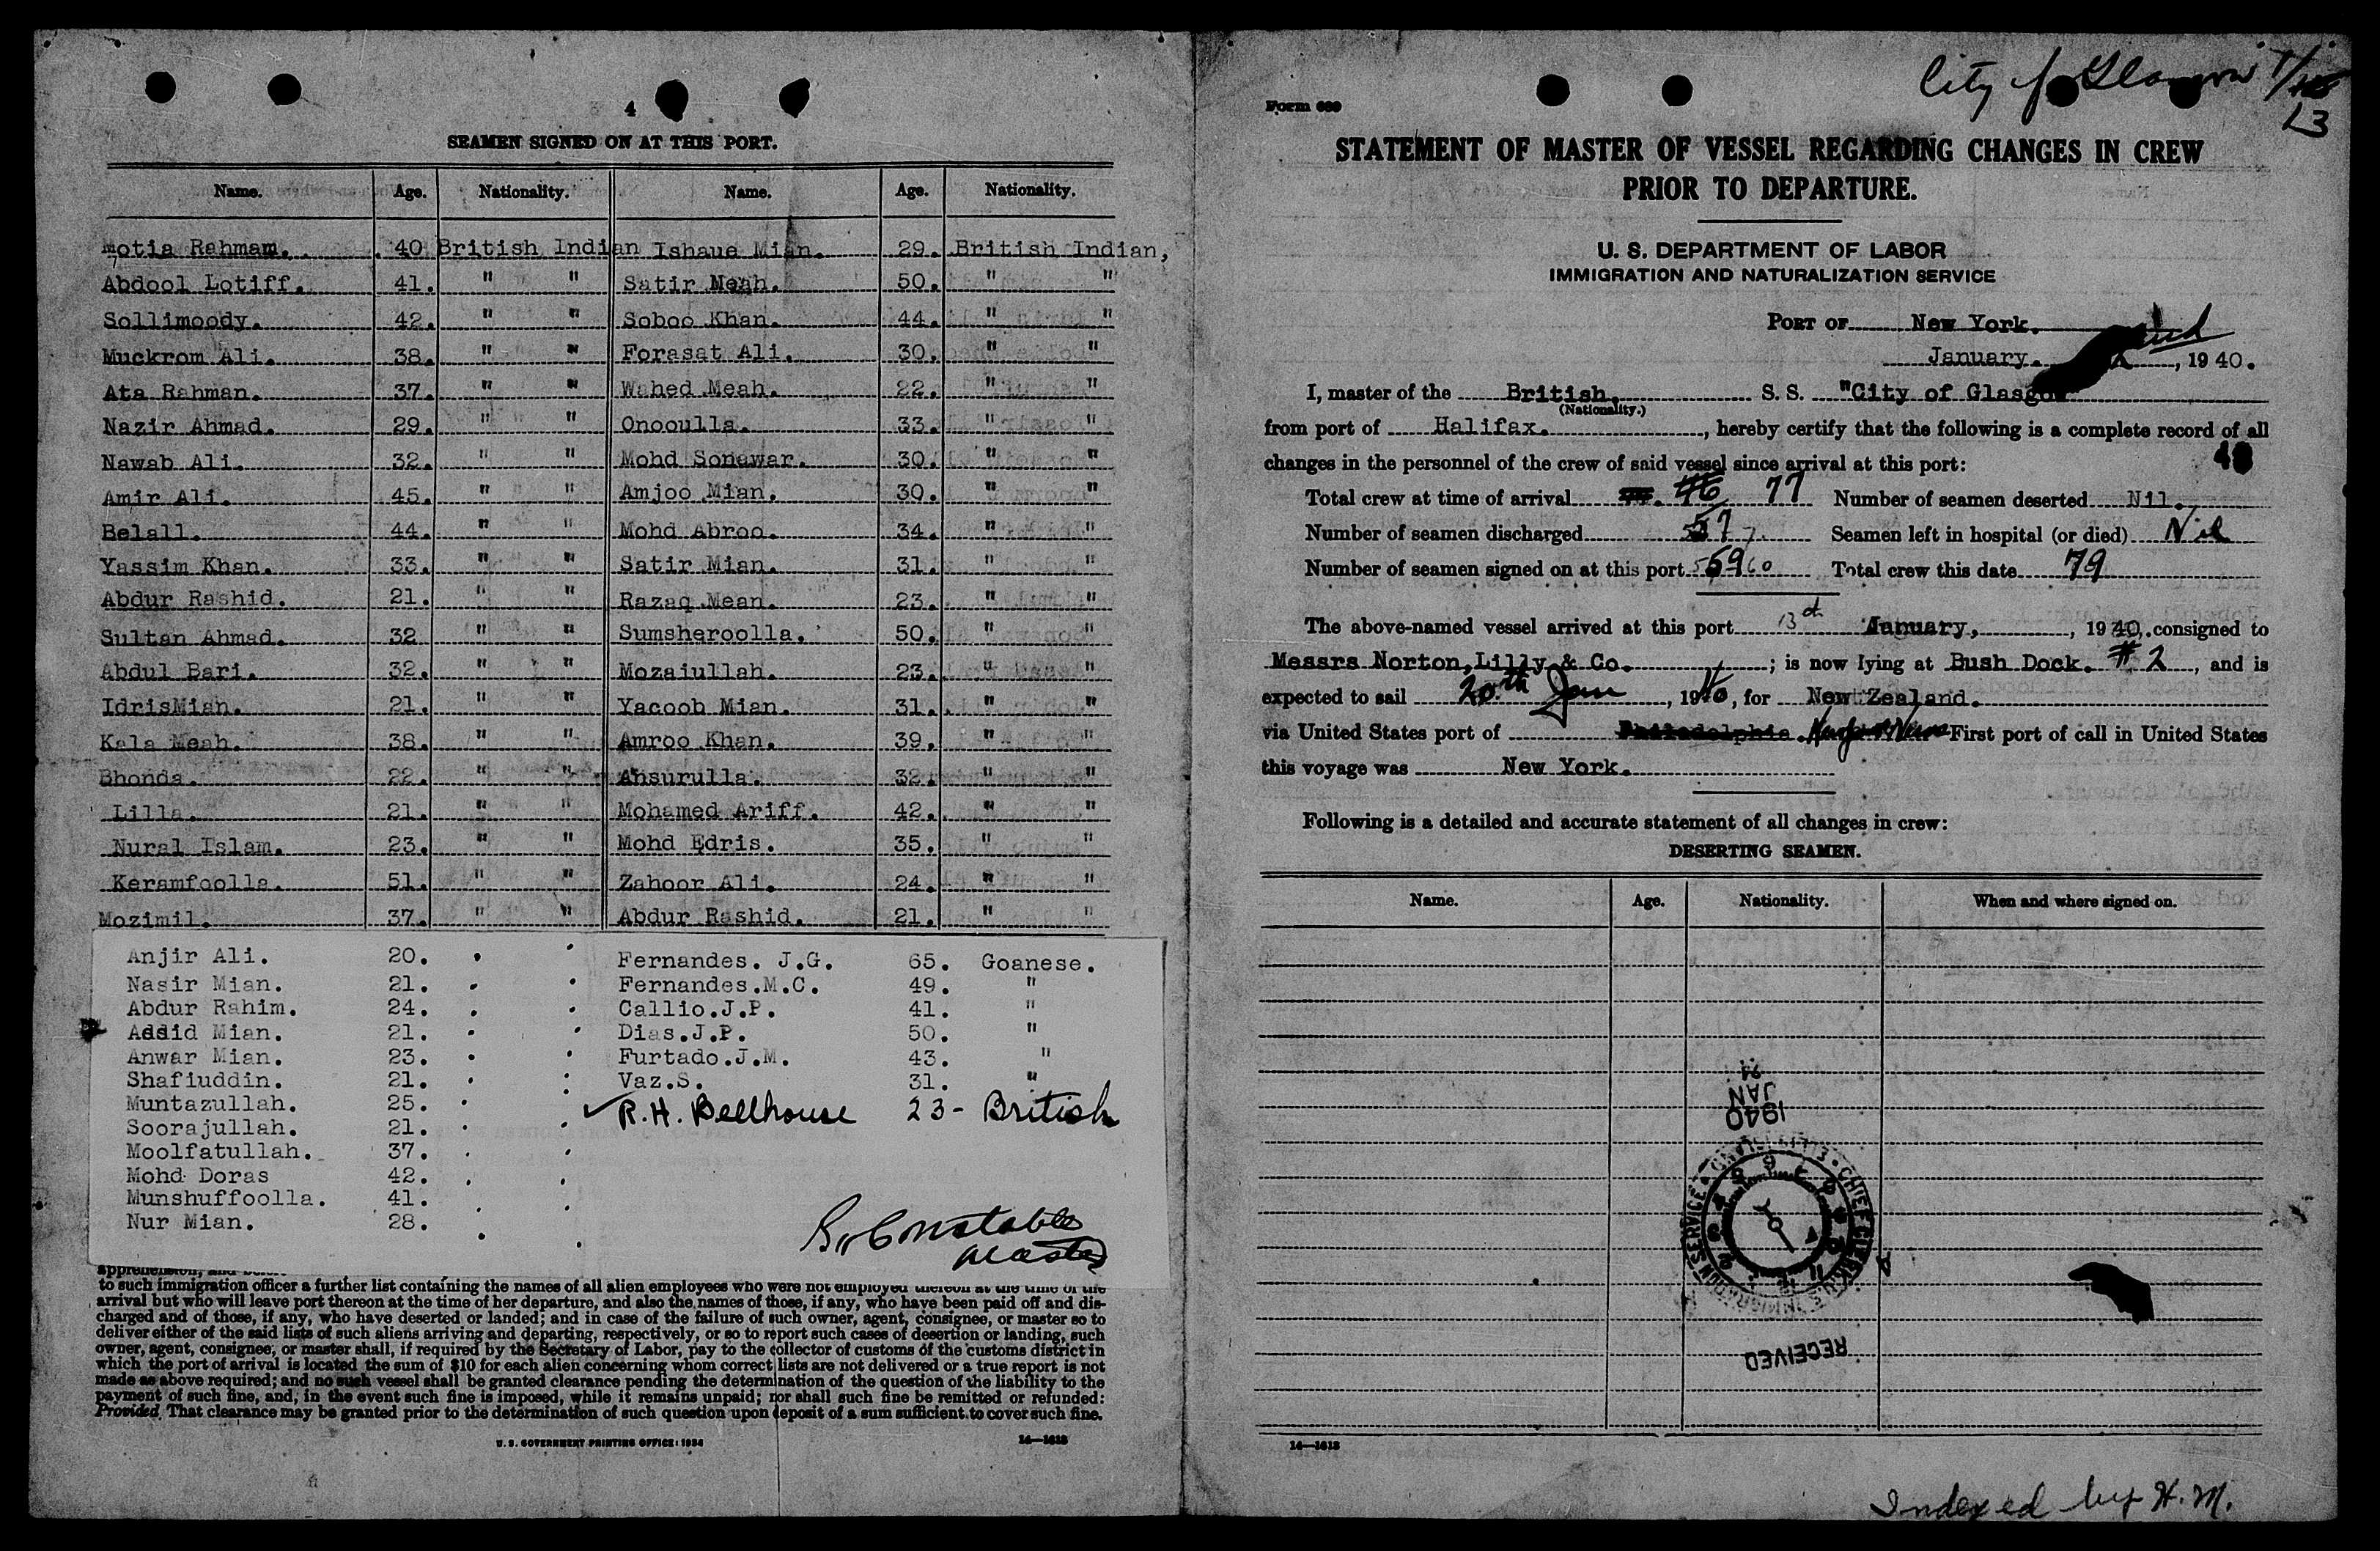 4
SEAMEN SIGNED ON AT THIS PORT.
Name. Age. Nationality. Name. Age. Nationality.
motia Rahmam. 40 British Indian Ishaue Mian. 29. British Indian,
Abdool Lotiff. 41. " " Satir Meah. 50. " "
Sollimoody. 42. " " Soboo Khan. 44. " "
Muckrom Ali. 38. " " Forasat Ali. 30. " "
Ata Rahman. 37. " " Wahed Meah. 22. " "
Nazir Ahmad. 29. " " Onooulla. 33. " "
Nawab Ali. 32. " " Mohd Sonawar. 30. " "
Amir Ali. 45. " " Amjoo Mian. 30. " "
Belall. 44. " " Mohd Abroo. 34. " "
Yassim Khan. 33. " " Satir Mian. 31. " "
Abdur Rashid. 21. " " Razaq Mean. 23. " "
Sultan Ahmad. 32 " " Sumsheroolla. 50. " "
Abdul Bari. 32. " " Mozaiullah. 23. " "
IdrisMian. 21. " " Yacoob Mian. 31. " "
Kala Meah. 38. " " Amroo Khan. 39. " "
Bhonda. 22. " " Ahsurulla. 32. " "
Lilla. 21. " " Mohamed Ariff. 42. " "
Nural Islam. 23. " " Mohd Edris. 35. " "
Keramfoolla. 51. " " Zahoor Ali. 24. " "
Mozimil. 37. " " Abdur Rashid. 21. " "
Anjir Ali. 20. Fernandes. J.G. 65. Goanese.
Nasir Mian. 21. Fernandes.M.C. 49. "
Abdur Rahim. 24. Callio.J.P. 41. "
Assid Mian. 21. Dias.J.P. 50. "
Anwar Mian. 23. Furtado.J.M. 43. "
Shafiuddin. 21. Vaz.S. 31. "
Muntazullah. 25. R.H. Bellhouse 23 - British
Soorajullah. 21.
Moolfatullah. 37.
Mohd Doras 42.
Munshuffoolla. 41.
Nur Mian. 28.
Constable
Master
apprehension, and
to such immigration officer a further list containing the names of all alien employees who were not employed thereon at the time of the
arrival but who will leave port thereon at the time of her departure, and also the names of those, if any, who have been paid off and dis-
charged and of those, if any, who have deserted or landed; and in case of the failure of such owner, agent, consignee, or master so to
deliver either of the said lists of such aliens arriving and departing, respectively, or so to report such cases of desertion or landing, such
owner, agent, consignee, or master shall, if required by the Secretary of Labor, pay to the collector of customs of the customs district in
which the port of arrival is located the sum of $10 for each alien concerning whom correct lists are not delivered or a true report is not
made as above required; and no such vessel shall be granted clearance pending the determination of the question of the liability to the
payment of such fine, and, in the event such fine is imposed, while it remains unpaid; nor shall such fine be remitted or refunded:
Provided, That clearance may be granted prior to the determination of such question upon deposit of a sum sufficient to cover such fine.
U. S. GOVERNMENT PRINTING OFFICE: 1934 14—1613
City of Glasgow
13
Form 689
STATEMENT OF MASTER OF VESSEL REGARDING CHANGES IN CREW
PRIOR TO DEPARTURE.
U. S. DEPARTMENT OF LABOR
IMMIGRATION AND NATURALIZATION SERVICE
PORT OF New York.
January. , 1940.
I, master of the British. S. S. "City of Glasgow
(Nationality.)
from port of Halifax. , hereby certify that the following is a complete record of all
changes in the personnel of the crew of said vessel since arrival at this port:
Total crew at time of arrival 77 Number of seamen deserted Nil.
Number of seamen discharged 57 Seamen left in hospital (or died) Nil
Number of seamen signed on at this port 59 60 Total crew this date 79
The above-named vessel arrived at this port 13d January, , 1940, consigned to
Messrs Norton,Lilly & Co. ; is now lying at Bush Dock. # 2 , and is
expected to sail 20th Jan , 1940, for New Zealand.
via United States port of Philadelphia. First port of call in United States
this voyage was New York.
Following is a detailed and accurate statement of all changes in crew:
DESERTING SEAMEN.
Name. Age. Nationality. When and where signed on.
RECEIVED
1940
JAN
24
14—1613
Indexed by H.M.